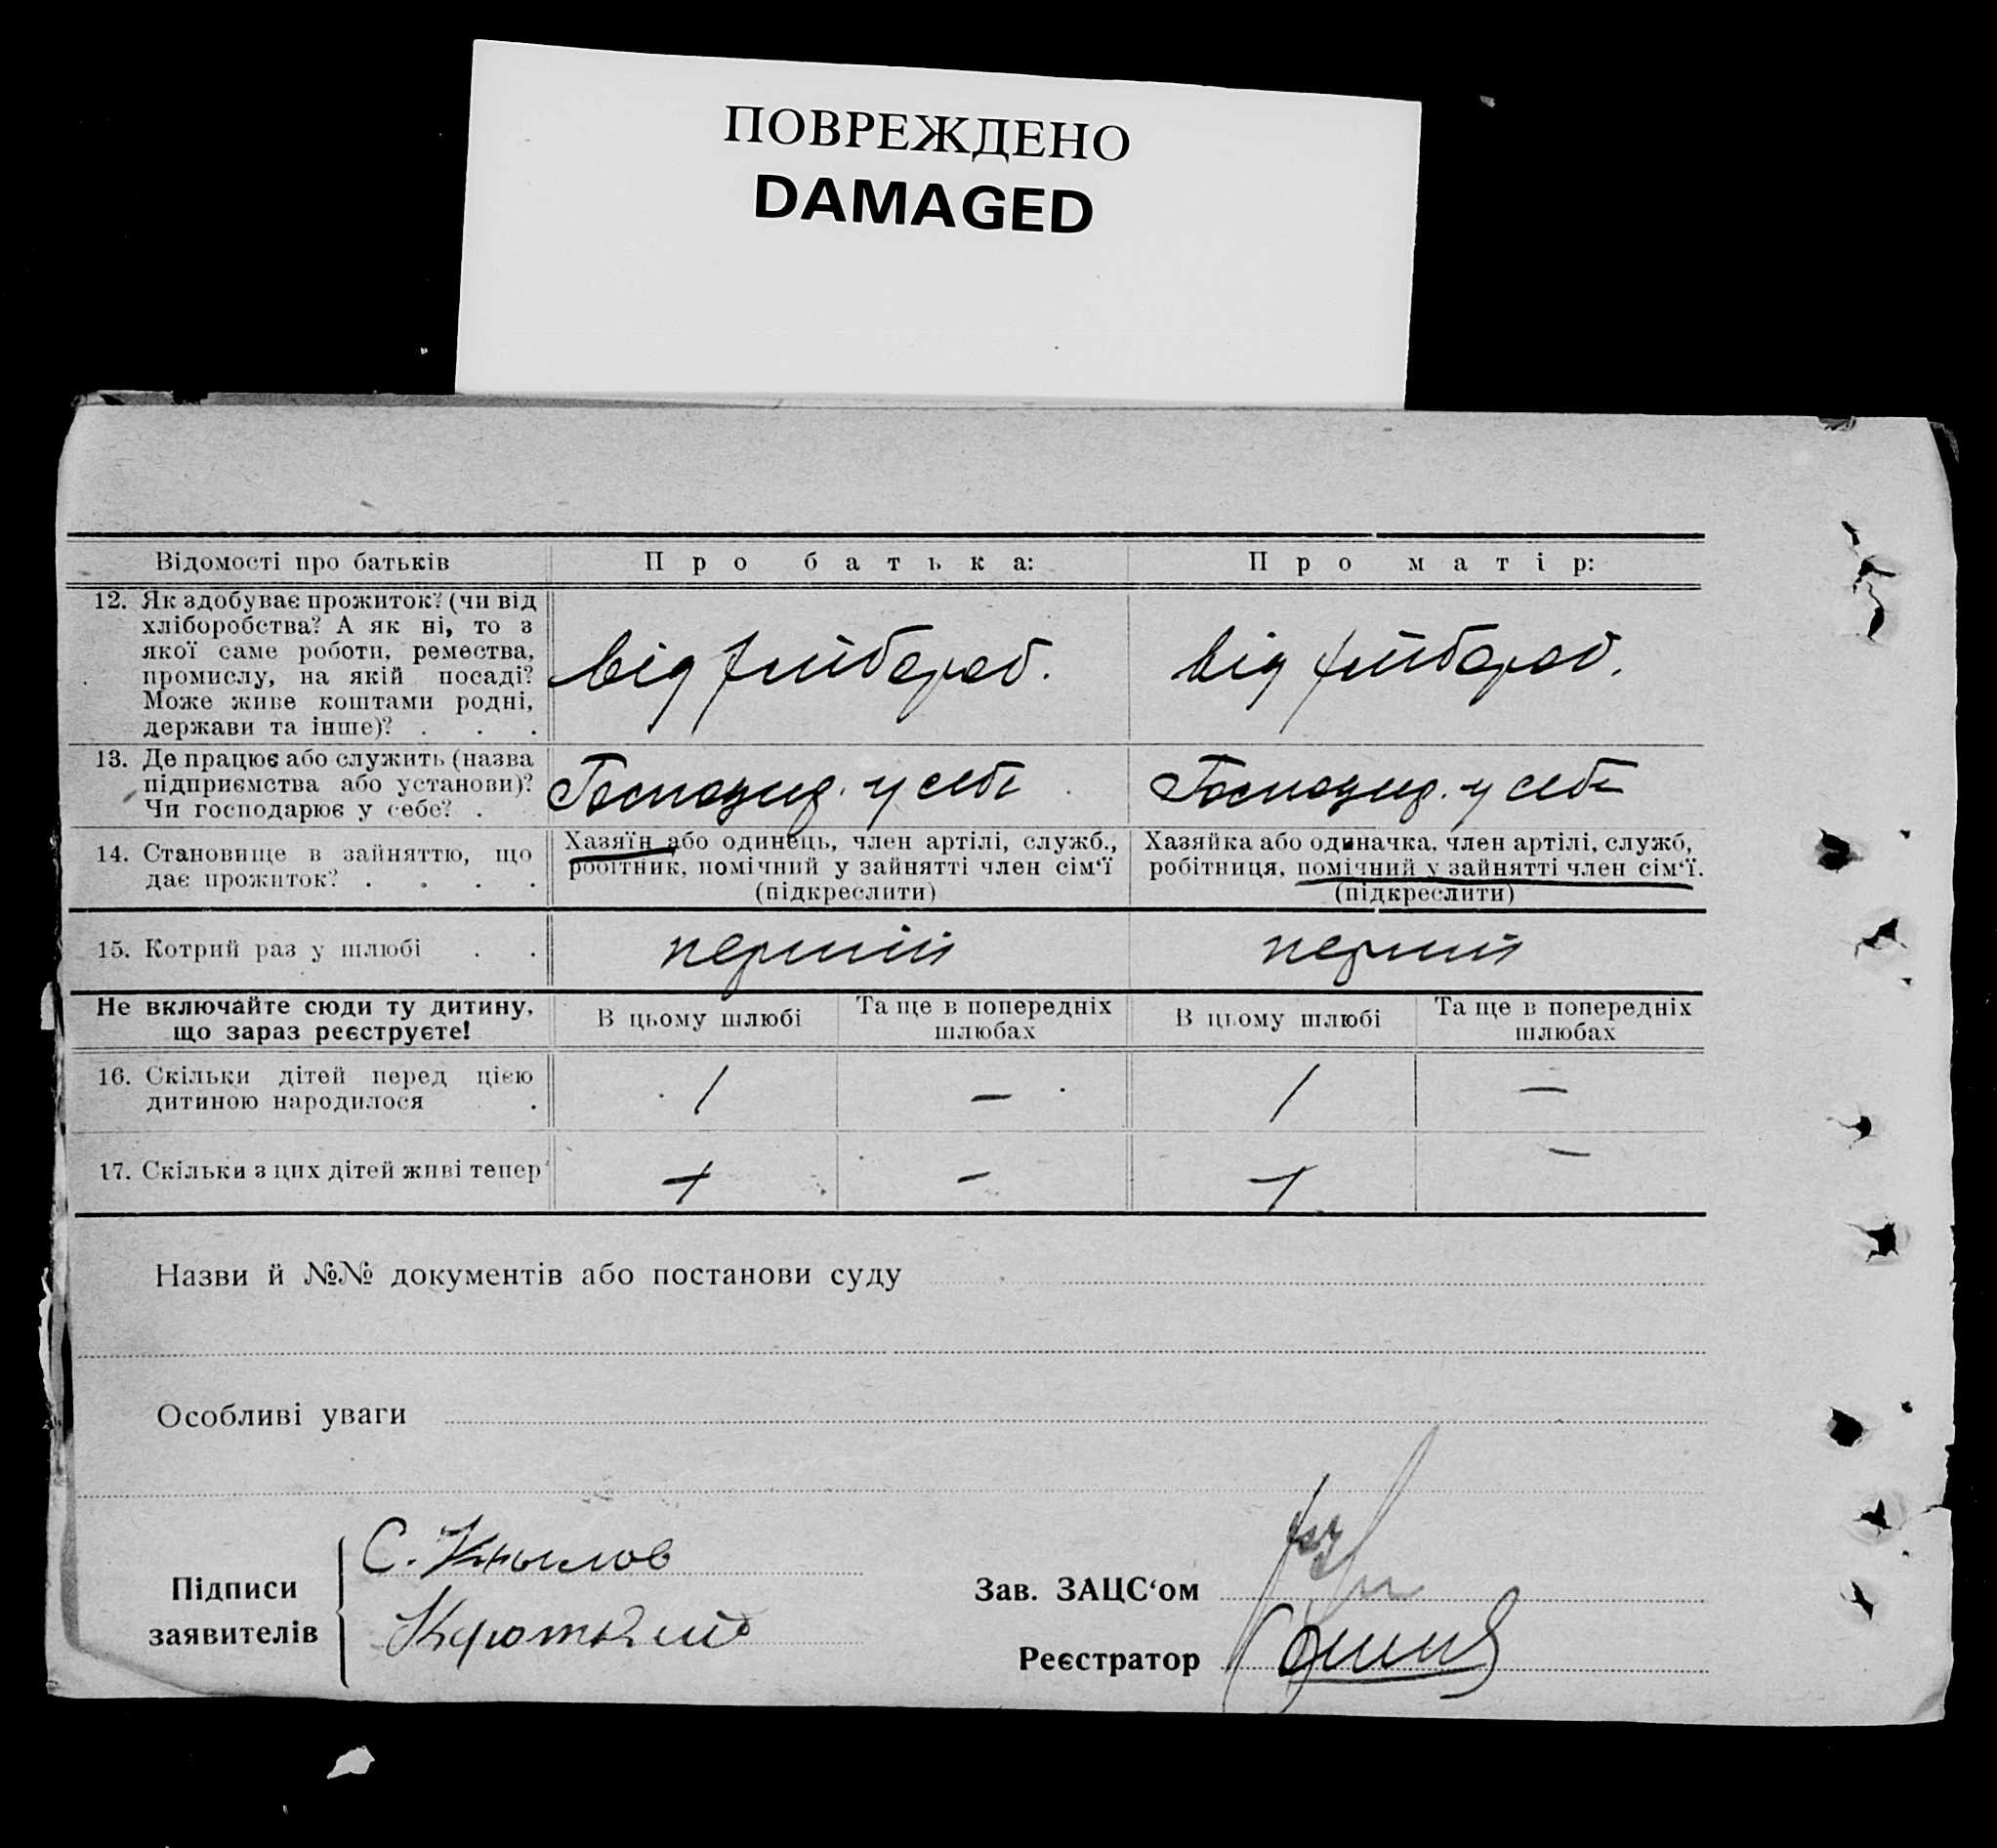 ПОВРЕЖДЕНО
DAMAGED
Відомості про батьків
Про батька:
Про матір:
12. Як здобуває прожиток? (чи від
хліборобства? А як ні, то з
якої саме роботи, ремества,
промислу, на якій посаді?
Може живе коштами родні,
держави та інше)? . . .
від хлібороб.
від хлібороб.
13. Де працює або служить (назва
підприємства або установи)?
Чи господарює у себе? .
Господар. у себе
Господар. у себе
14. Становище в зайняттю, що
дає прожиток? . . . .
Хазяїн або одинець, член артілі, служб.,
робітник, помічний у зайнятті член сім‘ї
(підкреслити)
Хазяйка або одиначка, член артілі, служб,
робітниця, помічний у зайнятті член сім‘ї.
(підкреслити)
15. Котрий раз у шлюбі . .
перший
перший
Не включайте сюди ту дитину,
що зараз реєструєте!
В цьому шлюбі
Та ще в попередніх
шлюбах
В цьому шлюбі
Та ще в попередніх
шлюбах
16. Скільки дітей перед цією
дитиною народилося .
1
—
1
—
17. Скільки з цих дітей живі тепер
+
—
+
—
Назви й №№ документів або постанови суду
Особливі уваги
Підписи
заявителів
С.
Зав. ЗАЦС‘ом
Реєстратор